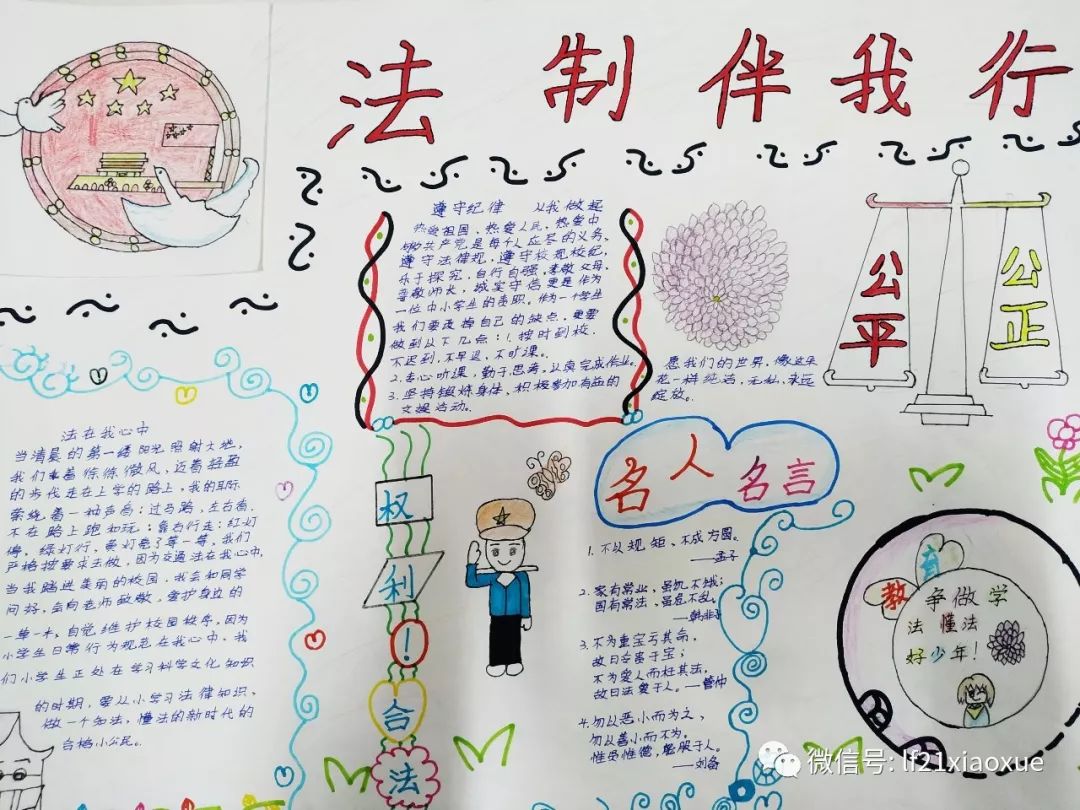 法制伴我行
遵守纪律 从我做起
热爱祖国、热爱人民、热爱中
国共产党是每个人应尽的义务、
遵守法律规，遵守校规校纪，
乐于探究，自行自强，孝敬父母、
尊敬师长，诚实守信更是作为
一位中小学生的责职。作为一个学生
我们要改掉自己的缺点，更要
做到以下几点：1.按时到校．
不迟到，不早退，不旷课。
2.专心听课，勤于思考，认真完成作业。
3.坚持锻炼身体，积极参加有益的
文娱活动。
愿我们的世界，像这朵
花一样纯洁，无私，永远
绽放。
公平
公正
法在我心中
当清晨的第一缕阳光照射大地，
我们乘着徐徐微风，迈着轻盈
的步伐走在上学的路上，我的耳际
萦绕着一种声音：过马路，左右看，
不在路上跑和玩；靠右行走；红灯
停，绿灯行，黄灯亮了等一等，我们
严格按要求去做，因为交通法在我心中，
当我踏进美丽的校园，我会和同学
问好，会向老师致敬，爱护身边的
一草一木，自觉维护校园秩序，因为
小学生日常行为规范在我心中，我
们小学生正处在学习科学文化知识
的时期，要从小学习法律知识，
做一个知法，懂法的新时代的
合格小公民。
权利！合法
名人名言
1.不以规矩，不成方圆。
——孟子
2.家有常业，虽饥不饿；
国有常法，虽危不乱。
——韩非子
3.不为重宝亏其命，
故曰令贵于宝；
不为爱人而枉其法，
故曰法爱于人。——管仲
4.勿以恶小而为之，
勿以善小而不为。
惟贤惟德，能服于人。
——刘备
教育
争做学
法懂法
好少年！
微信号: lf21xiaoxue